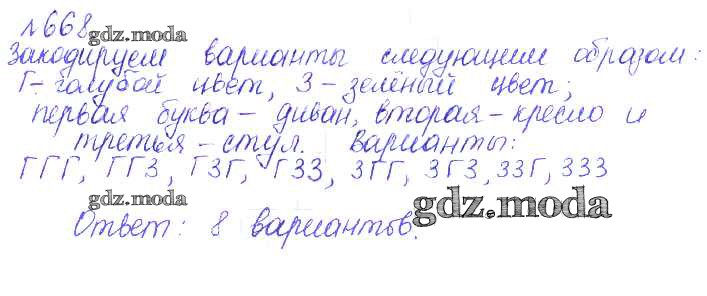 №668
gdz.moda
Закодируем варианты следующим образом:
Г-голубой цвет, З-зелёный цвет;
первая буква - диван, вторая - кресло и
третья - стул. Варианты:
ГГГ, ГГЗ, ГЗГ, ГЗЗ, ЗГГ, ЗГЗ, ЗЗГ, ЗЗЗ
gdz.moda
gdz.moda
Ответ: 8 вариантов.